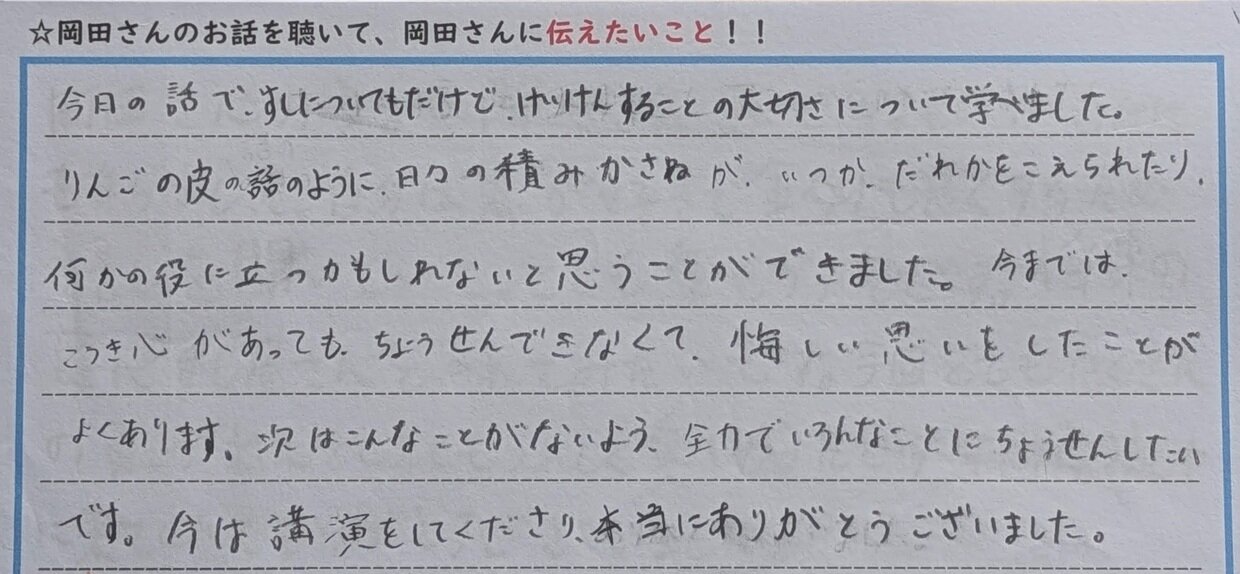 ☆岡田さんのお話を聴いて、岡田さんに伝えたいこと！！
今日の話で、すしについてもだけど、けいけんすることの大切さについて学べました。
りんごの皮の話のように、日々の積みかさねが、いつか、だれかをこえられたり、
何かの役に立つかもしれないと思うことができました。今までは、
こうき心があっても、ちょうせんできなくて、悔しい思いをしたことが
よくあります。次はこんなことがないよう、全力でいろんなことにちょうせんしたい
です。今は講演をしてくださり、本当にありがとうございました。